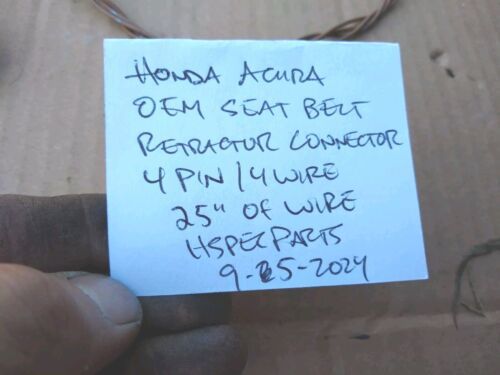 HONDA ACURA
OEM SEAT BELT
RETRACTOR CONNECTOR
4 PIN / 4 WIRE
25" OF WIRE
HSPECPARTS
9-25-2024